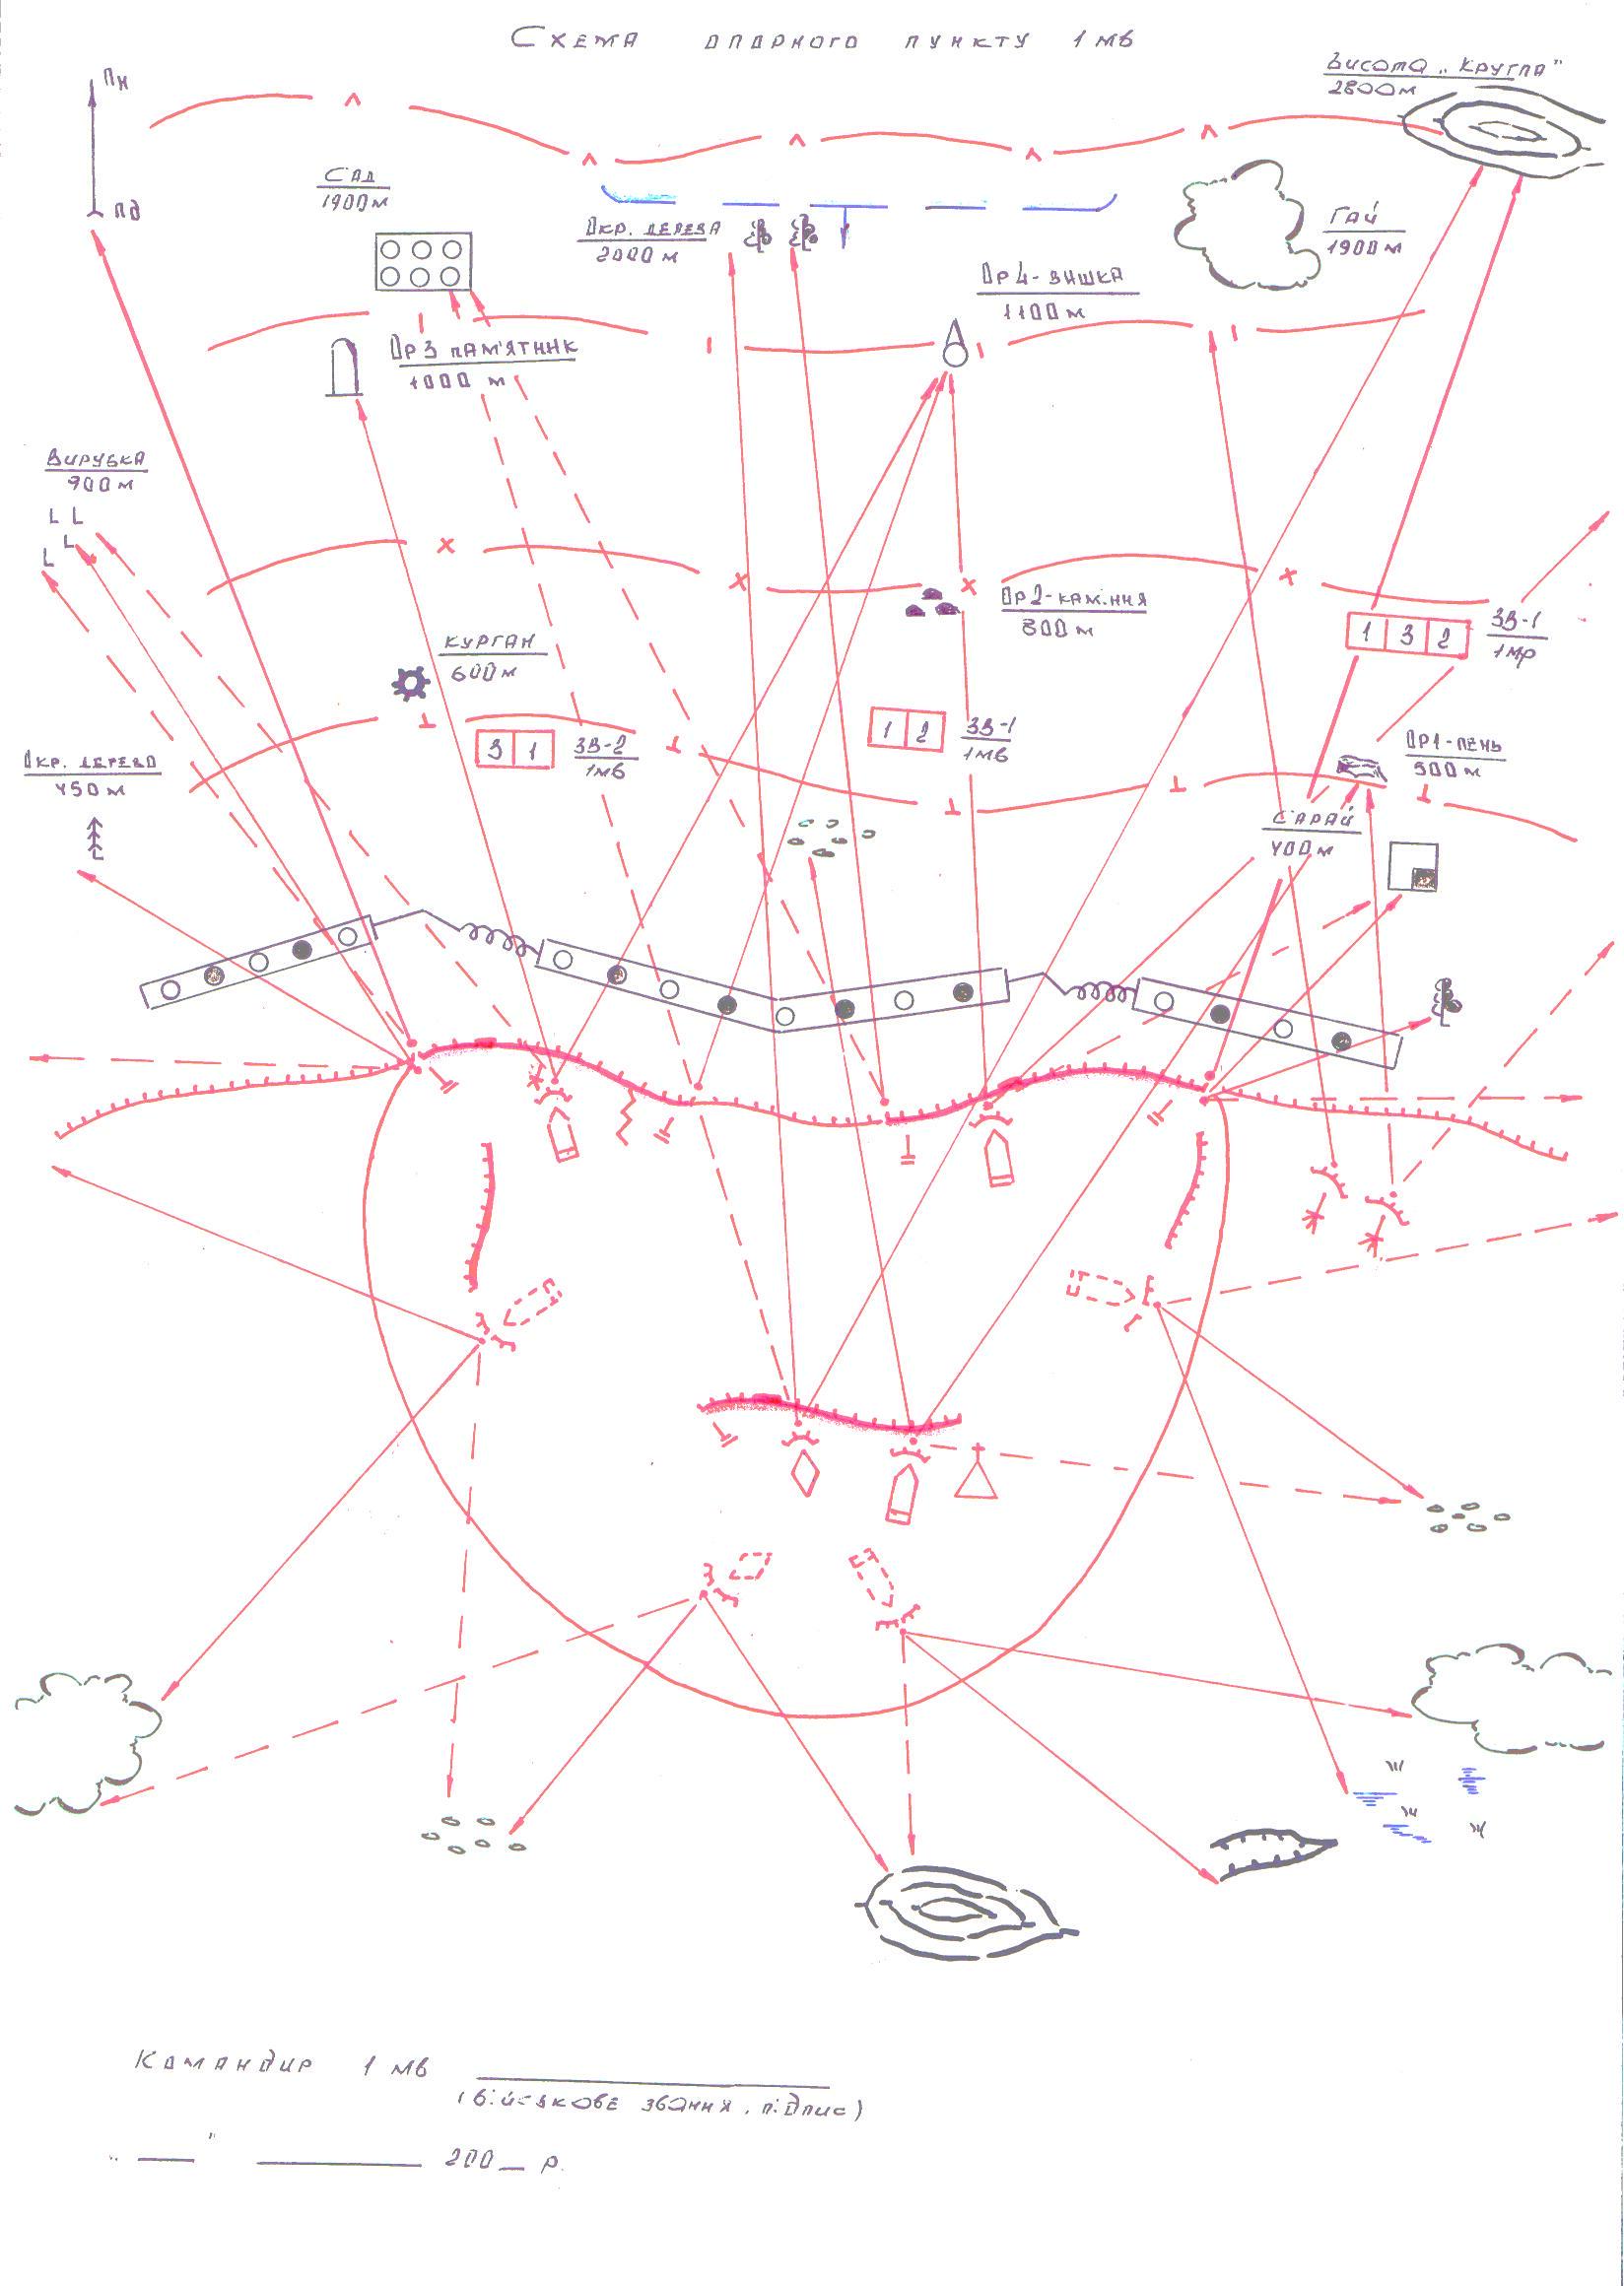 Схема опорного пункту 1 мв
Пн
Пд
Висота „Кругла"
2800м
Сад
1900м
Окр. дерева
2000м
Гай
1900м
Ор 4-вишка
1100м
Ор 3 пам'ятник
1000 м
Вирубка
900м
Ор2-каміння
800м
1 3 2
ЗВ-1
1мр
Курган
600м
3 1
ЗВ-2
1мв
1 2
ЗВ-1
1мв
Ор1-пень
500м
Окр. дерево
450м
Сарай
400м
Командир 1 мв
(військове звання, підпис)
„ — " 200_ р.